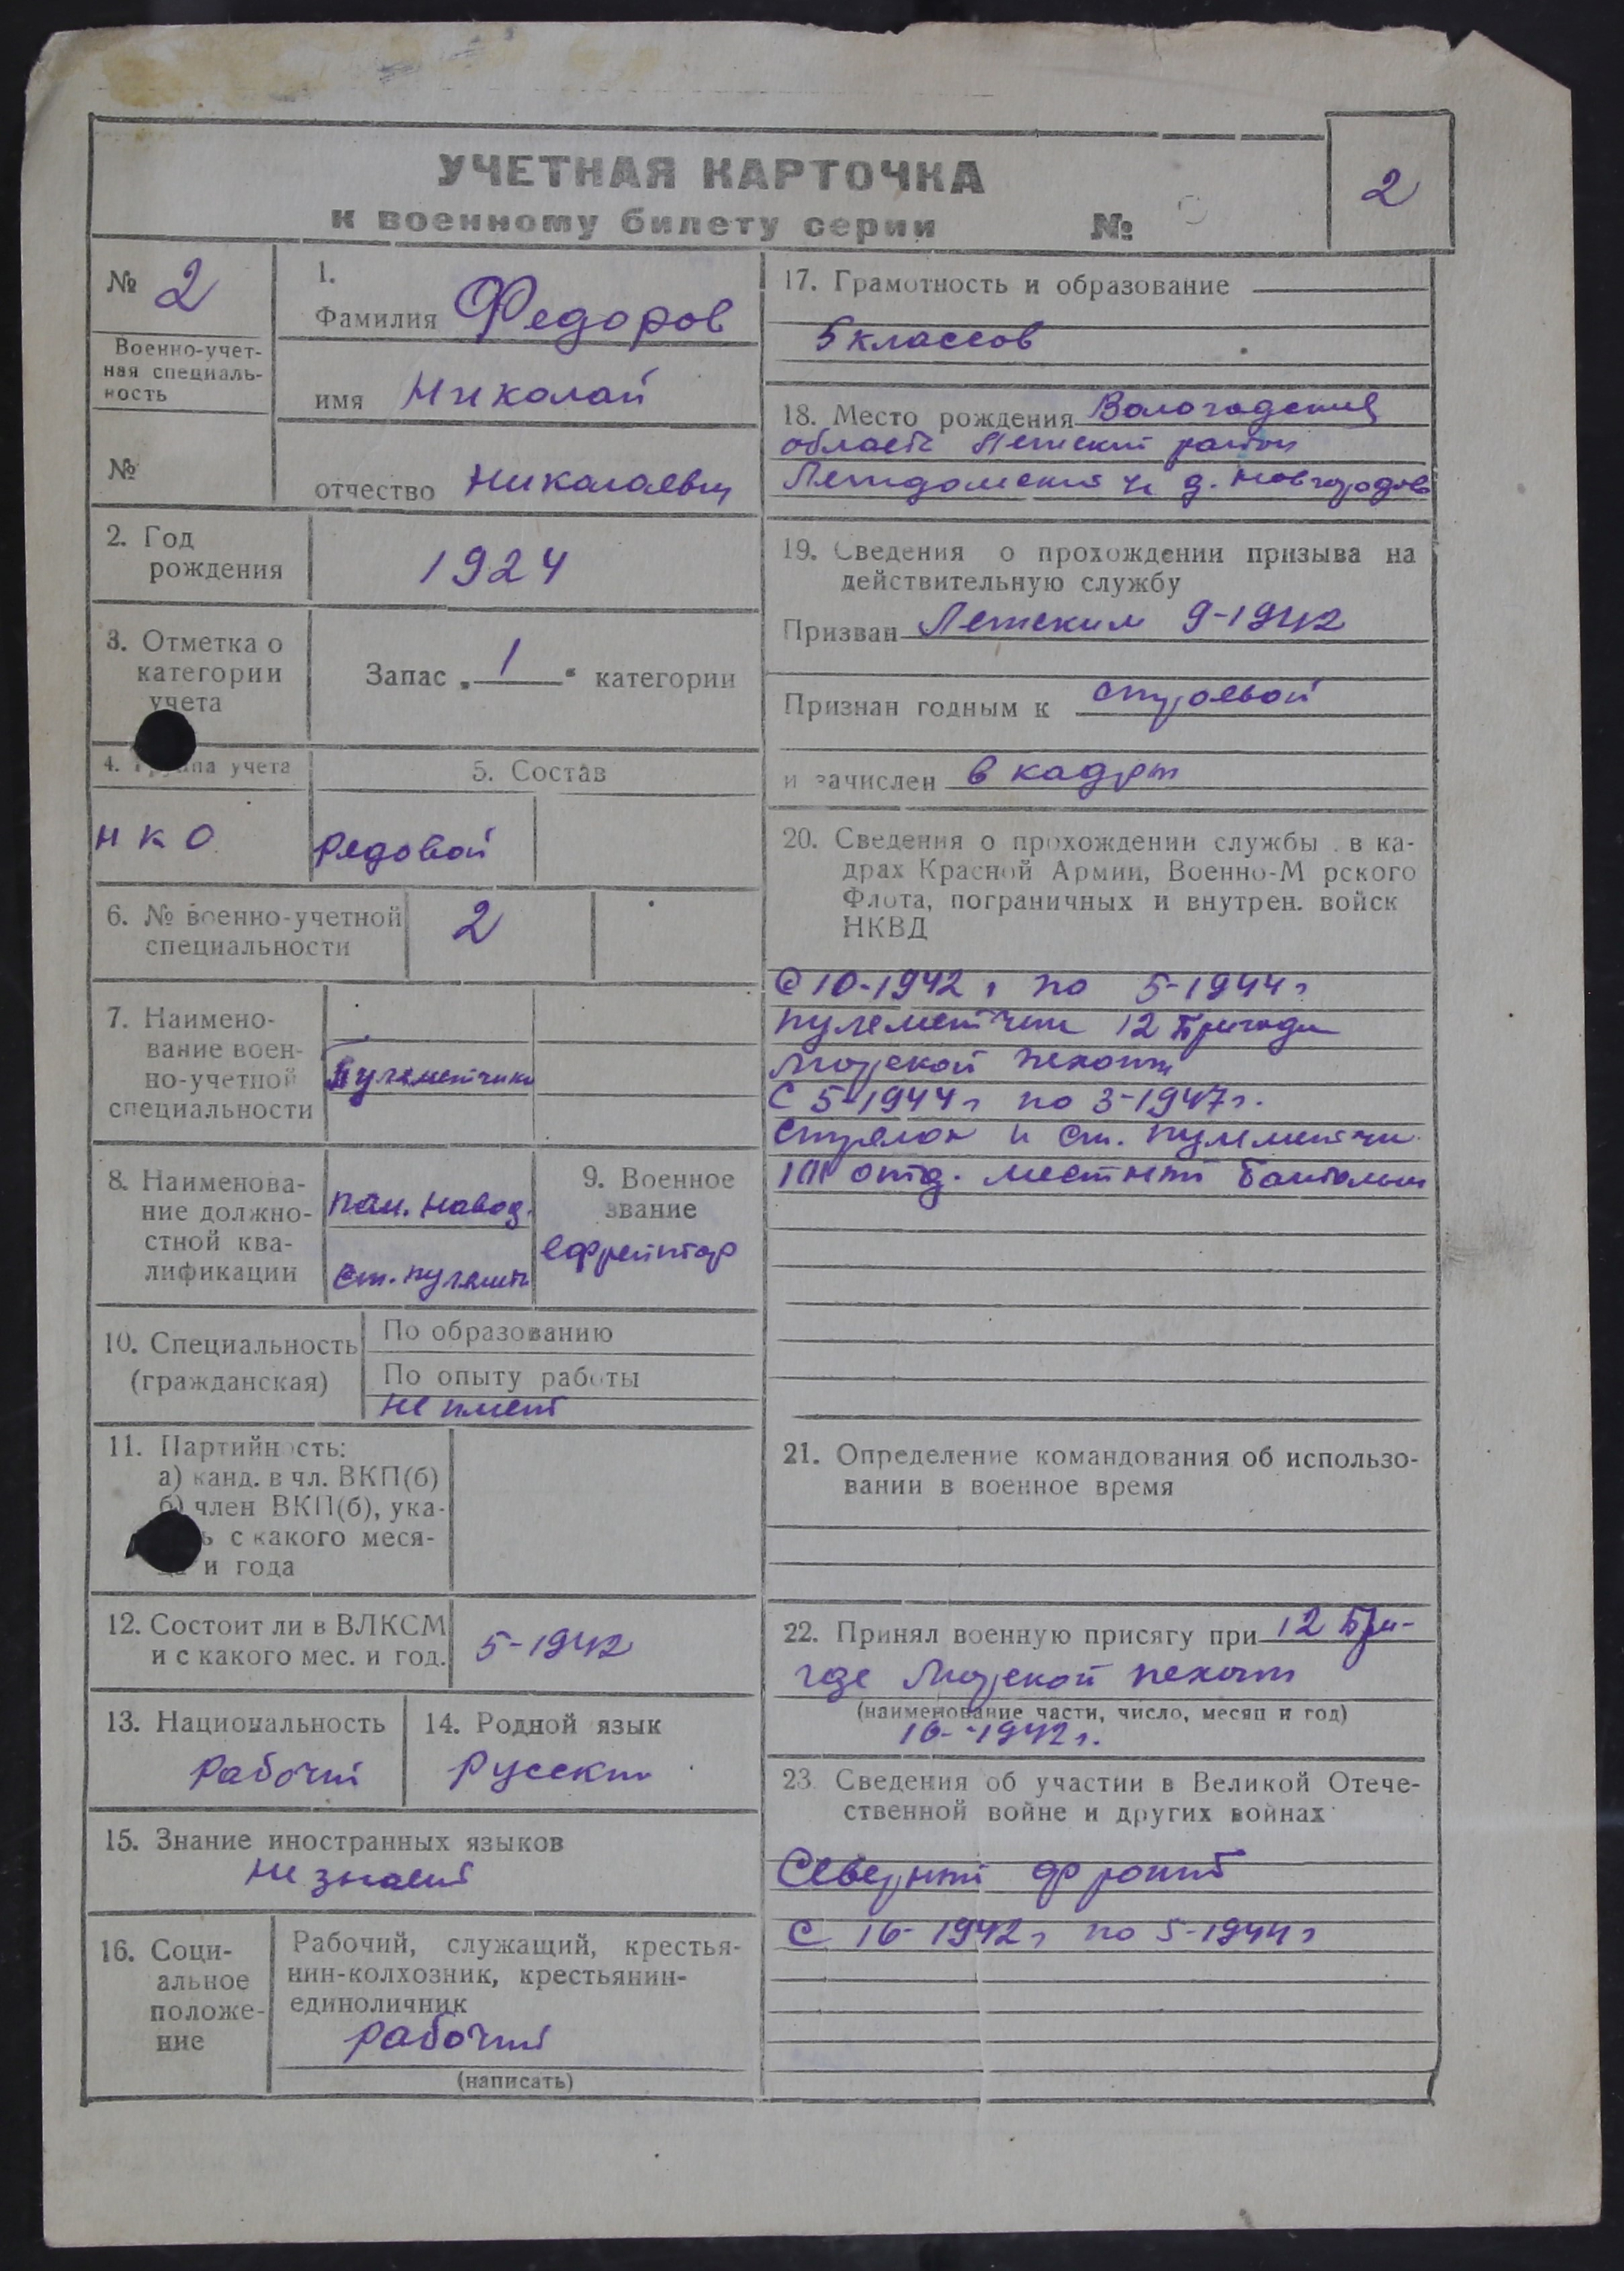 УЧЕТНАЯ КАРТОЧКА
к военному билету серии №
2
№ 2
Военно-учет-
ная специаль-
ность
№
1.
Фамилия Федоров
имя Николай
отчество Николаевич
2. Год
рождения
1924
3. Отметка о
категории
учета
Запас „ 1 “ категории
4. Группа учета
НКО
5. Состав
Рядовой
6. № военно-учетной
специальности
2
7. Наимено-
вание воен-
но-учетной
специальности
Пулеметчики
8. Наименова-
ние должно-
стной ква-
лификации
пом. навод.
ст. пулемет
9. Военное
звание
ефрейтор
10. Специальность
(гражданская)
По образованию
По опыту работы
не имеет
11. Партийность:
а) канд. в чл. ВКП(б)
б) член ВКП(б), ука-
ь с какого меся-
ца и года
12. Состоит ли в ВЛКСМ
и с какого мес. и год.
5-1942
13. Национальность
Рабочий
14. Родной язык
Русский
15. Знание иностранных языков
не знает
16. Соци-
альное
положе-
ние
Рабочий, служащий, крестья-
нин-колхозник, крестьянин-
единоличник
рабочий
(написать)
17. Грамотность и образование
5 классов
18. Место рождения Вологодский
область район
д. Новгородово
19. Сведения о прохождении призыва на
действительную службу
Призван 9-1942
Признан годным к строевой
и зачислен в кадры
20. Сведения о прохождении службы в ка-
драх Красной Армии, Военно-М рского
Флота, пограничных и внутрен. войск
НКВД
С 10-1942 г по 5-1944 г
пулеметчик 12 Бригады
Морской пехоты
С 5-1944 г по 3-1947 г.
стрелок и ст. пулеметчик
отд. местный батальон
21. Определение командования об использо-
вании в военное время
22. Принял военную присягу при 12 Бри-
где Морской пехоты
(наименование части, число, месяц и год)
10-1942 г.
23. Сведения об участии в Великой Отече-
ственной войне и других войнах
Северный фронт
С 10-1942 г по 5-1944 г